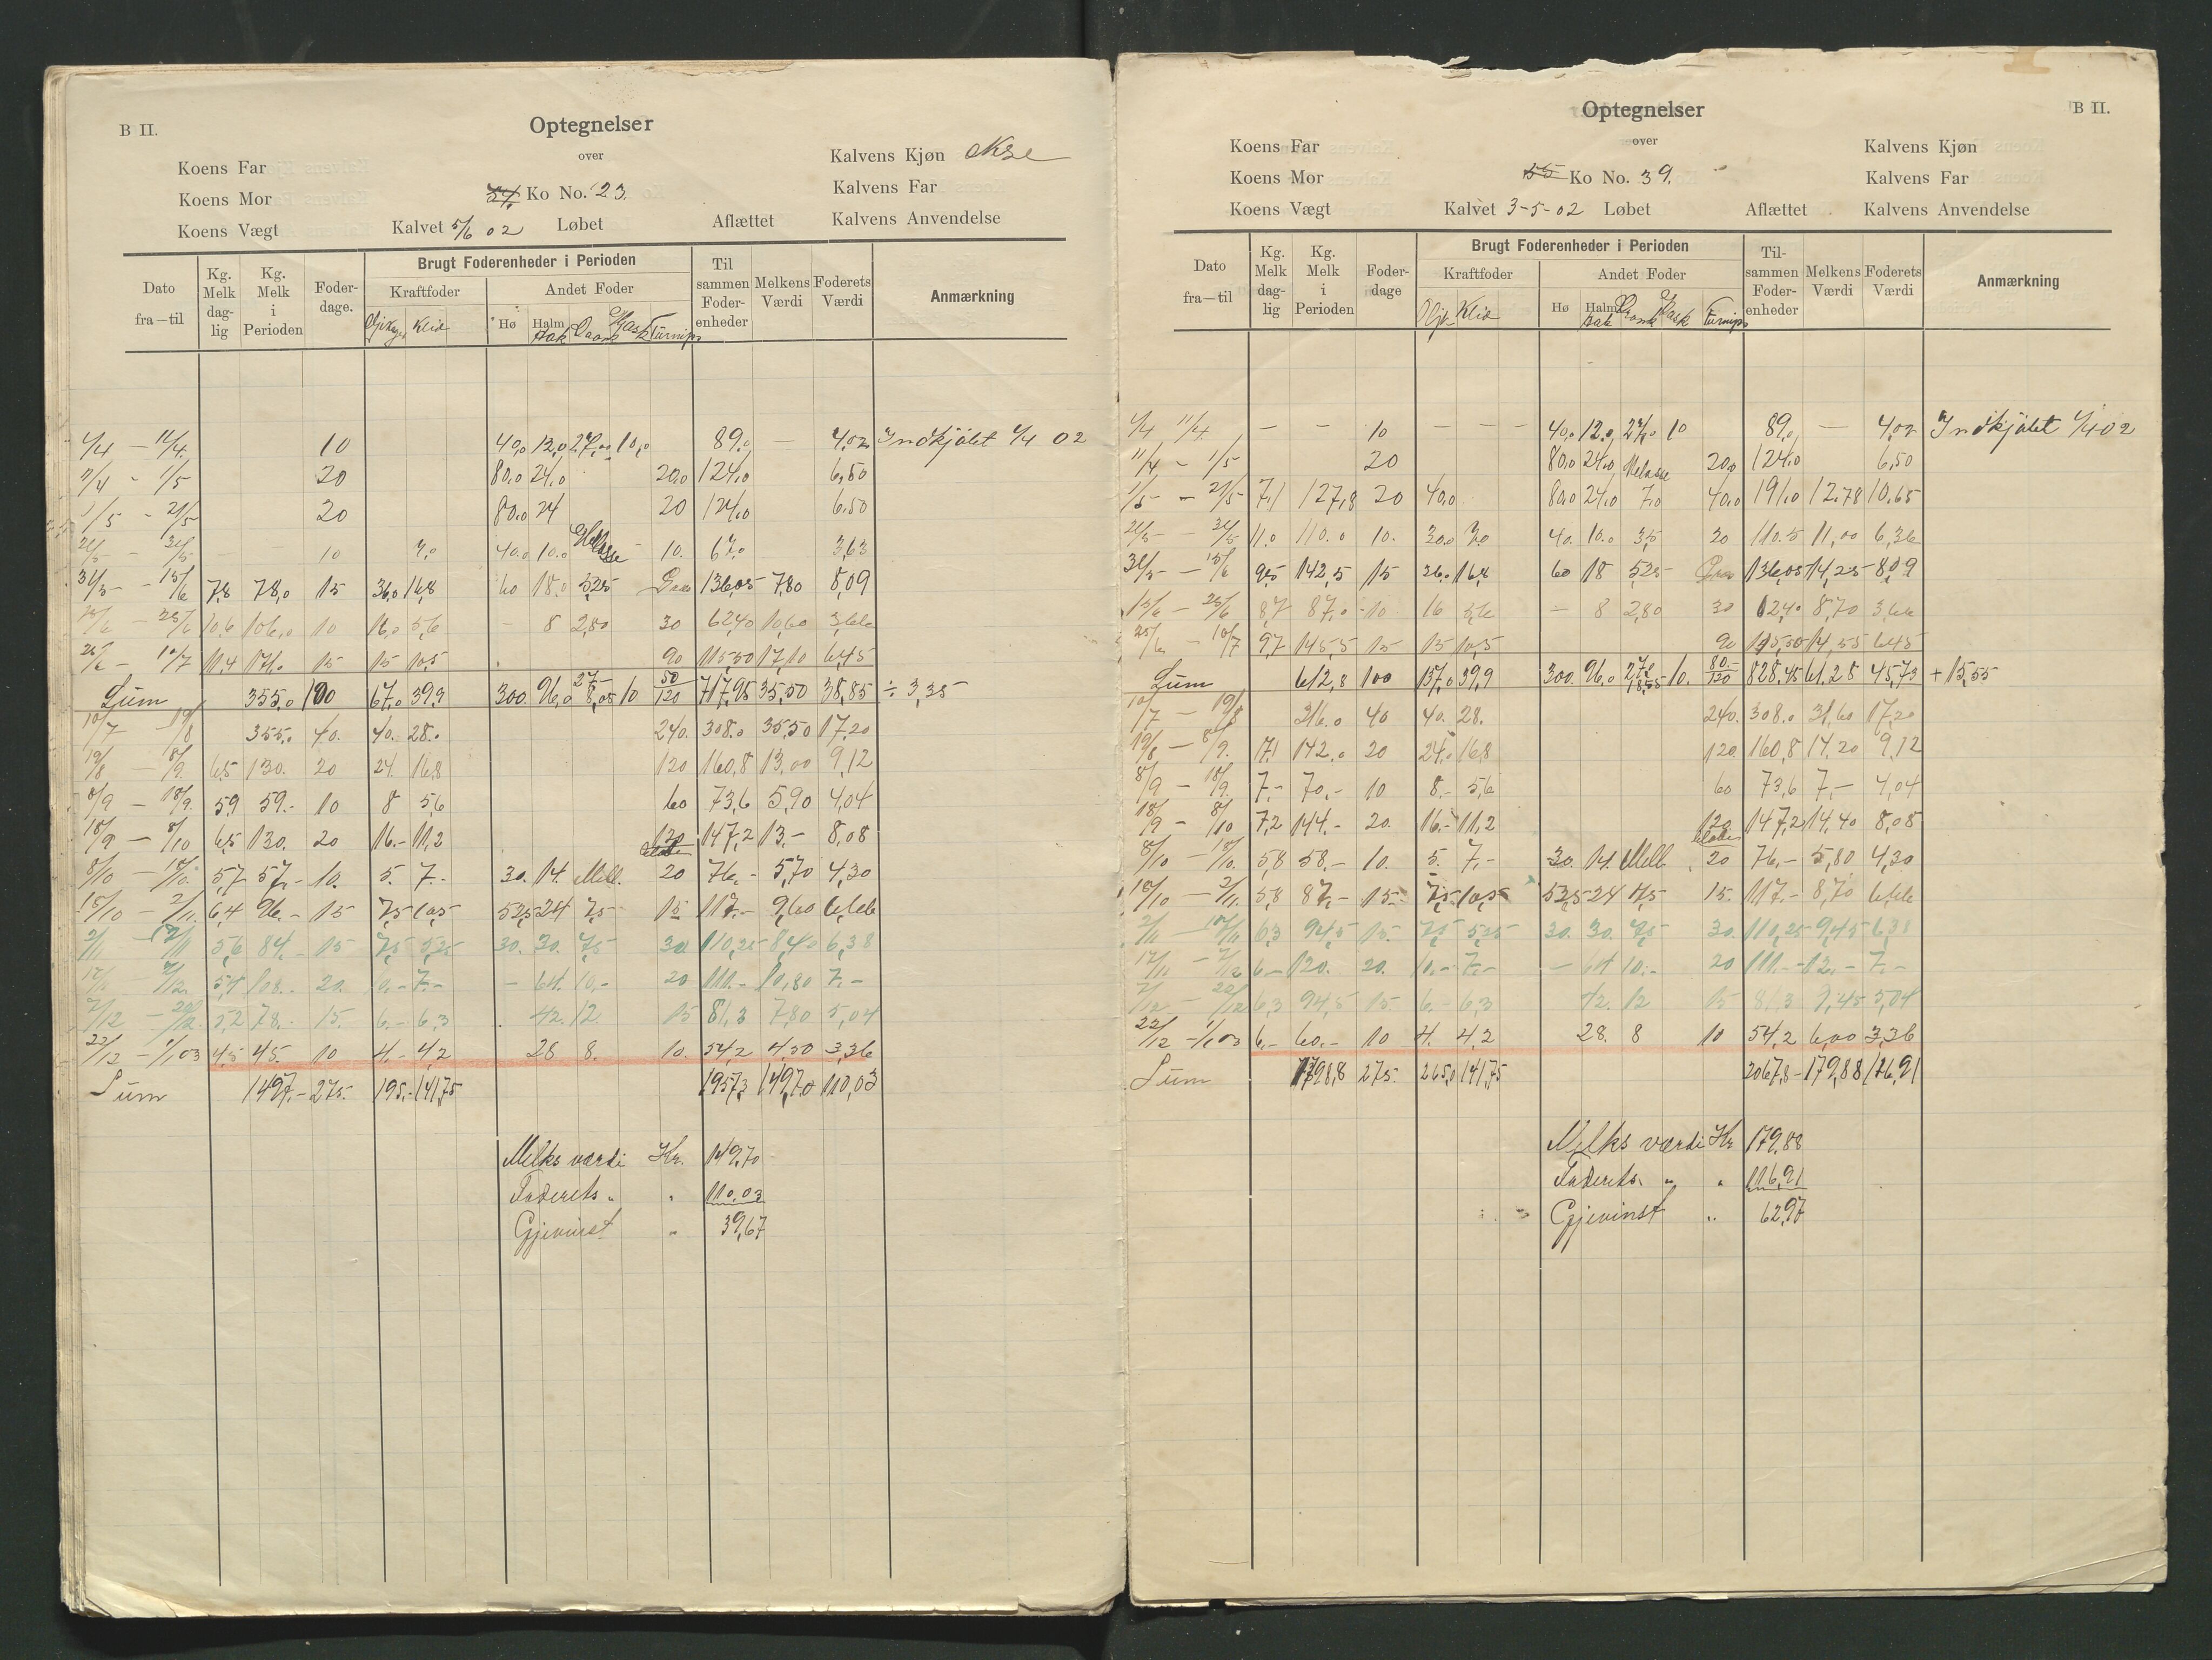 B II.
Optegnelser
over
54. Ko No. 23.
Koens Far
Koens Mor
Koens Vægt
Kalvet 5/6 02 Løbet Aflættet
Kalvens Kjøn Okse
Kalvens Far
Kalvens Anvendelse
Dato fra—til Kg. Melk dag-lig Kg. Melk i Perioden Foder-dage. Brugt Foderenheder i Perioden Til sammen Foder-enheder Melkens Værdi Foderets Værdi Anmærkning
Kraftfoder Andet Foder
Klid Hø Halm Turnips
1/4 — 11/4. 10 40,0 12,0 27,0 10,0 89,0 — 4,02 Indkjøbt 1/4 02
11/4 - 1/5 20 80,0 24,0 20,0 124,0 6,50
1/5 - 21/5 20 80,0 24 20 124,0 6,50
21/5 - 31/5 10 7,0 40,0 10,0 Melasse 10. 67,0 3,63
31/5 - 15/6 7,8 78,0 15 36,0 16,8 60 18,0 5,25 136,05 7,80 8,09
15/6 - 25/6 10,6 106,0 10 16,0 5,6 - 8 2,80 30 62,40 10,60 3,66
25/6 - 10/7 11,4 171,0 15 15 10,5 90 115,50 17,10 6,45
Sum 355,0 100 67,0 39,9 300. 96,0 27- 8,05 10 50 120 717,95 35,50 38,85 ÷ 3,35
10/7 - 19/8 355,0 40. 40. 28,0 240. 308,0 35,50 17,20
19/8 - 8/9. 6,5 130. 20 24. 16,8 120 160,8 13,00 9,12
8/9 - 18/9. 5,9 59.- 10 8 5,6 60 73,6 5,90 4,04
18/9 - 8/10 6,5 130. 20 16.- 11,2 120 147,2 13.- 8,08
8/10 - 18/10. 5,7 57,- 10. 5. 7.- 30. 14. Mell. 20 76,- 5,70 4,30
18/10 - 2/11. 6,4 96.- 15 7,5 10,5 52,5 24 7,5 15 117.- 9,60 6,66
2/11 - 17/11 5,6 84.- 15 7,5 5,25 30. 30. 7,5 30 110,25 8,40 6,38
17/11 - 7/12. 5,4 108.- 20. 10.- 7.- - 64. 10,- 20 111.- 10,80 7.-
7/12 - 22/12. 5,2 78.- 15. 6.- 6,3 42. 12. 15 81,3 7,80 5,04
22/12 - 1/1 03 4,5 45. 10 4.- 4,2 28 8. 10. 54,2 4,50 3,36
Sum 1497.- 275. 195.- 141,75 1957,3 149,70 110,03
Melks værdi Kr. 149,70
Foderets " " 110,03
Gjevinst " 39,67
Optegnelser
B II.
over
55 Ko No. 39.
Koens Far
Koens Mor
Koens Vægt
Kalvet 3-5-02 Løbet Aflættet
Kalvens Kjøn
Kalvens Far
Kalvens Anvendelse
Dato fra—til Kg. Melk dag-lig Kg. Melk i Perioden Foder-dage Brugt Foderenheder i Perioden Til-sammen Foder-enheder Melkens Værdi Foderets Værdi Anmærkning
Kraftfoder Andet Foder
Klid Hø Halm Turnips
1/4 11/4. — — 10 — — — 40,0 12,0 27,0 10 89,0 — 4,02 Indkjøbt 1/4 02
11/4 - 1/5 20 80,0 24,0 20,0 124,0 6,50
1/5 - 21/5 7,1 127,8 20 40,0 80,0 24,0 Melasse 7,0 40,0 191,0 12,78 10,65
21/5 - 31/5 11,0 110.0 10. 20,0 7,0 40. 10.0 3,5 20 110.5 11,00 6,36
31/5 - 15/6 9,5 142,5 15 36,0 16,8 60 18 5,25 136,05 14,25 8,09
15/6 - 25/6 8,7 87,0 10 16 5,6 — 8 2,80 30 62,40 8,70 3,66
25/6 - 10/7 9,7 145,5 15 15 10,5 90 115,50 14,55 6,45
Sum 612,8 100 137,0 39,9 300. 96,0 27,0 18,55 10. 80.- 120 828,45 61,28 45,73 + 15,55
10/7 - 19/8 316,0 40 40. 28. 240. 308.0 31,60 17,20
19/8 - 8/9. 7,1 142,0 20 24,0 16,8 120. 160,8 14,20 9,12
8/9 - 18/9. 7,- 70,- 10 8.- 5,6 60 73,6 7,- 4,04
18/9 - 8/10 7,2 144.- 20. 16.- 11,2 120 147,2 14,40 8,08
8/10 - 18/10. 5,8 58,- 10. 5. 7,- 30. 14. Mell. 20 76,- 5,80 4,30
18/10 - 2/11. 5,8 87,- 15 7,5 10,5 52,5 24 7,5 15. 117.- 8,70 6,66
2/11 - 17/11 6,3 94,5 15. 7,5 5,25 30. 30. 7,5 30. 110,25 9,45 6,38
17/11 - 7/12 6,- 120. 20. 10.- 7.- — 64 10.- 20 111.- 12.- 7.-
7/12 - 22/12 6,3 94,5 15. 6.- 6,3 42. 12 15 81,3 9,45 5,04
22/12 - 1/1 03 6,- 60.- 10 4. 4,2 28. 8 10 54,2 6,00 3,36
Sum 1798,8 275. 265,0 141,75 2067,8 - 179,88 116,91
Melks værdi Kr 179,88
Foderets " " 116,91
Gjevinst " 62,97